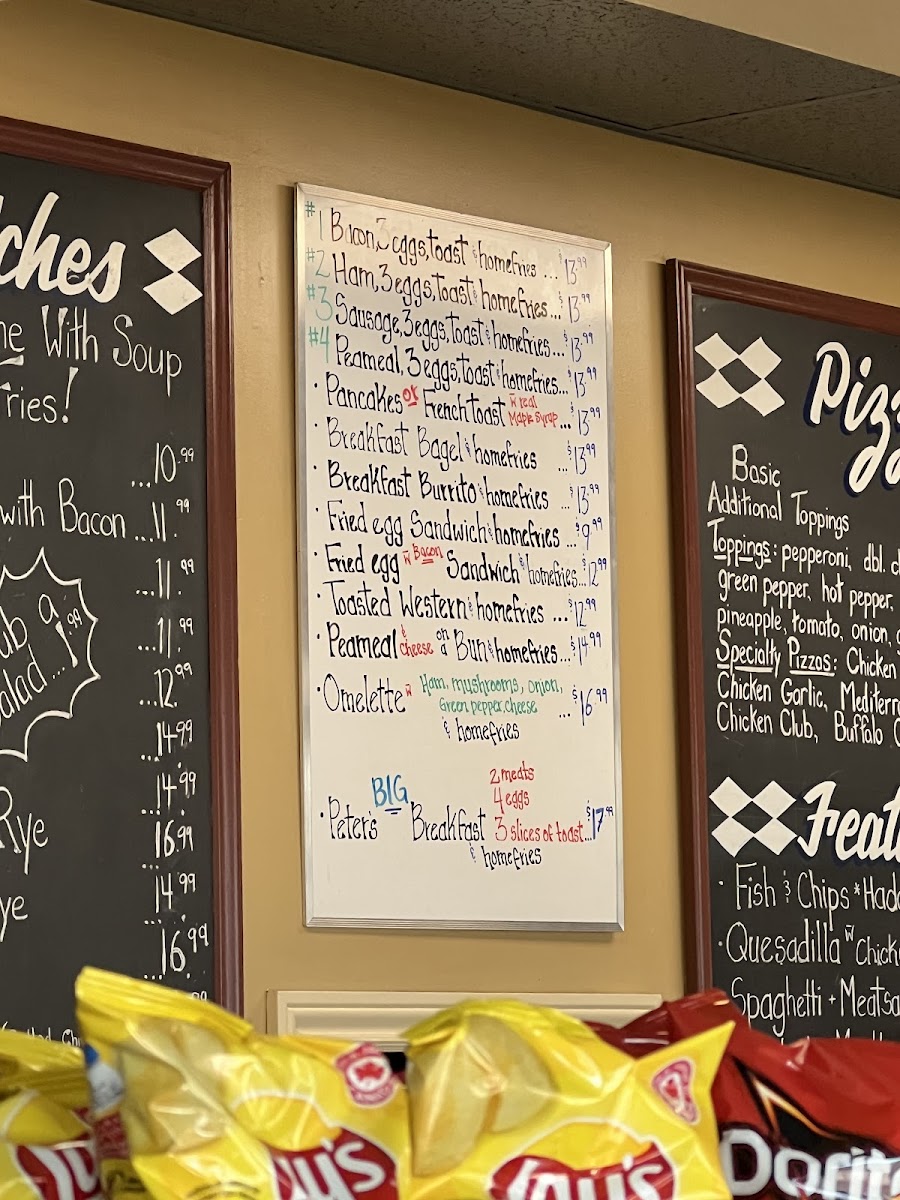 ches
With Soup
ries!
...10.99
with Bacon...11.99
...11.99
...11.99
...12.99
...14.99
...14.99
Rye ...16.99
...14.99
...16.99
#1 Bacon, 3 eggs, toast & homefries ... $13.99
#2 Ham, 3 eggs, Toast & homefries... $13.99
#3 Sausage, 3 eggs, Toast & homefries... $13.99
#4 Peameal, 3 eggs, toast & homefries... $13.99
· Pancakes or French toast w real Maple Syrup ... $13.99
· Breakfast Bagel & homefries ... $13.99
· Breakfast Burrito & homefries ... $13.99
· Fried egg Sandwich & homefries ... $9.99
· Fried egg w Bacon Sandwich & homefries... $12.99
· Toasted Western & homefries ... $12.99
· Peameal & cheese on a Bun & homefries... $14.99
· Omelette w Ham, mushrooms, onion,
Green pepper, cheese ... $16.99
& homefries
2 meats
BIG 4 eggs
· Peter's Breakfast 3 slices of toast... $17.99
& homefries
Pizz
Basic
Additional Toppings
Toppings: pepperoni, dbl. c
green pepper, hot pepper,
pineapple, tomato, onion,
Specialty Pizzas: Chicken
Chicken Garlic, Mediterr
Chicken Club, Buffalo C
Feat
· Fish & Chips * Hadd
· Quesadilla w Chick
Spaghetti + Meatsa
Lay's
Lay's
Dorit